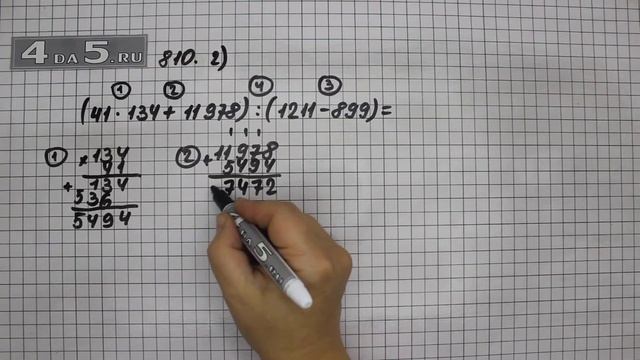 4DA5.RU 810. 2)
① ② ④ ③
(41·134+11978):(1211-899)=
① ×134
41
+134
536
5494
② +11978
5494
7472
4DA5.RU